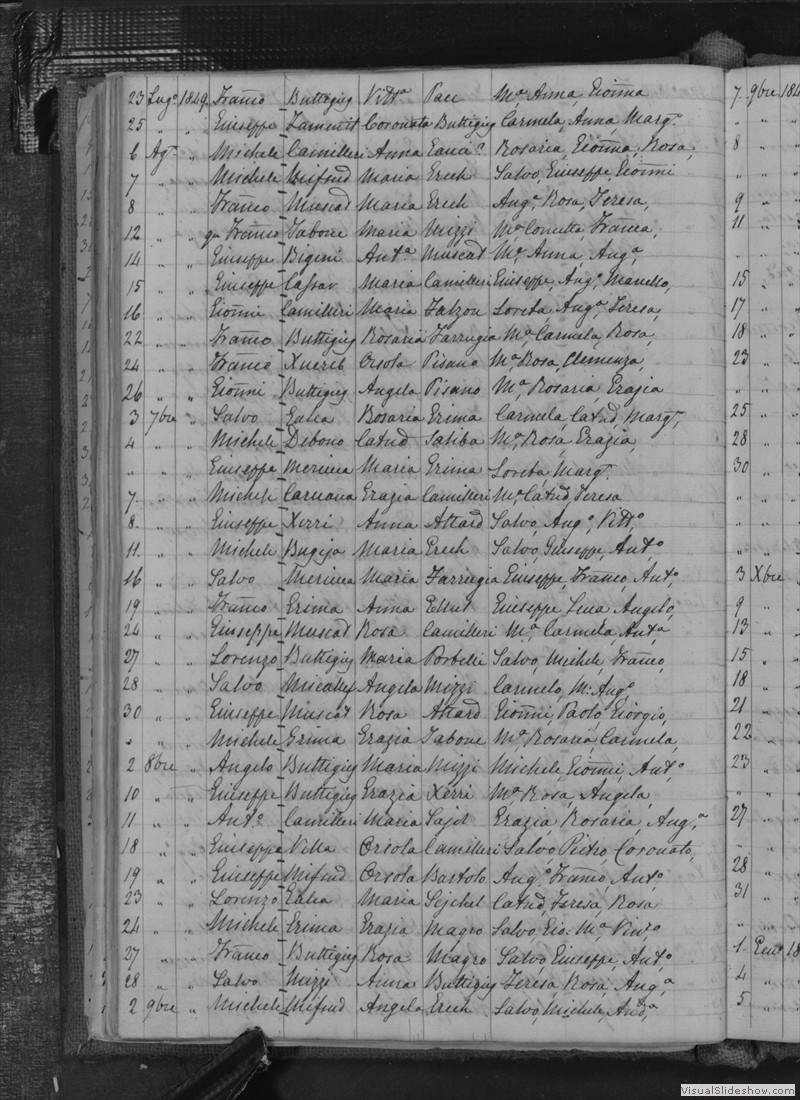 23 Lug° 1849 Franco Buttigieg Vitta Pace Ma Anna, Gionna
25 " " Giuseppe Zammit Coronata Buttigieg Carmela, Anna, Marga
6 Agt " Michele Camilleri Anna Gauci? Rosaria, Gionna, Rosa,
7 " " Michele Mifsud Maria Grech Salvo, Giuseppe, Gionni
8 " " Franco Muscat Maria Grech Anga Rosa, Teresa,
12 " " qm Franco Tabone Maria Mizzi Ma Concetta, Franca,
14 " " Giuseppe Bigeni Anta Muscat Ma Anna, Anga,
15 " " Giuseppe Cassar Maria Camilleri Giuseppe, Ango, Manello,
16 " " Gionni Camilleri Maria Falzon Loreta Anga, Teresa,
22 " " Franco Buttigieg Rosaria Farrugia Ma Carmela, Rosa,
24 " " Franco Xuereb Orsola Pisano Ma Rosa, Clemenza,
26 " " Gionni Buttigieg Angela Pisano Ma Rosaria, Grazia
3 7bre " Salvo Galea Rosaria Grima Carmela, Catnd, Marga,
4 " " Michele Debono Catnd Saliba Ma Rosa, Grazia,
" " " Giuseppe Mercieca Maria Grima Loreta, Marga.
7. " " Michele Caruana Grazia Camilleri Ma Catnd, Teresa
8. " " Giuseppe Xerri Anna Attard Salvo, Ango, Vitto,
11. " " Michele Bugeja Maria Grech Salvo, Giuseppe, Anto,
16 " " Salvo Mercieca Maria Farrugia Giuseppe, Franco, Anto
19 " " Franco Grima Anna Ellul Giuseppe Luca Angelo,
24 " " Giuseppe Muscat Rosa Camilleri Ma Carmela, Anta
27 " " Lorenzo Buttigieg Maria Portelli Salvo, Michele, Franco,
28 " " Salvo Micallef Angela Mizzi Carmelo, M: Ango,
30 " " Giuseppe Muscat Rosa Attard Gionni, Paolo, Giorgio,
" " " Michele Grima Grazia Tabone Ma Rosaria, Carmela,
2 8bre " Angelo Buttigieg Maria Mizzi Michele, Gionni, Anto
10 " " Giuseppe Buttigieg Grazia Xerri Ma Rosa, Angela,
11 " " Anto Camilleri Maria Sajd Grazia, Rosaria, Anga
18 " " Giuseppe Vella Orsola Camilleri Salvo, Pietro, Coronato,
19 " " Giuseppe Mifsud Orsola Bartolo Ango, Franco, Anto,
23 " " Lorenzo Galea Maria Sejchel Catnd, Teresa, Rosa
24 " " Michele Grima Grazia Magro Salvo, Gio: Ma Vinzo
27 " " Franco Buttigieg Rosa Magro Salvo, Giuseppe, Anto,
28 " " Salvo Mizzi Anna Buttigieg Teresa, Rosa, Anga,
2 9bre " Michele Mifsud Angela Grech Salvo, Michele, Anda
7 9bre 184
8 "
9 "
11 "
" "
15 "
17 "
18 "
23 "
" "
25 "
28 "
30 "
" "
" "
" "
3 Xbre
9 "
13 "
15 "
18 "
21 "
22 "
23 "
" "
27 "
" "
28 "
31 "
" "
1. 18
4 "
5 "
VisualSlideshow.com